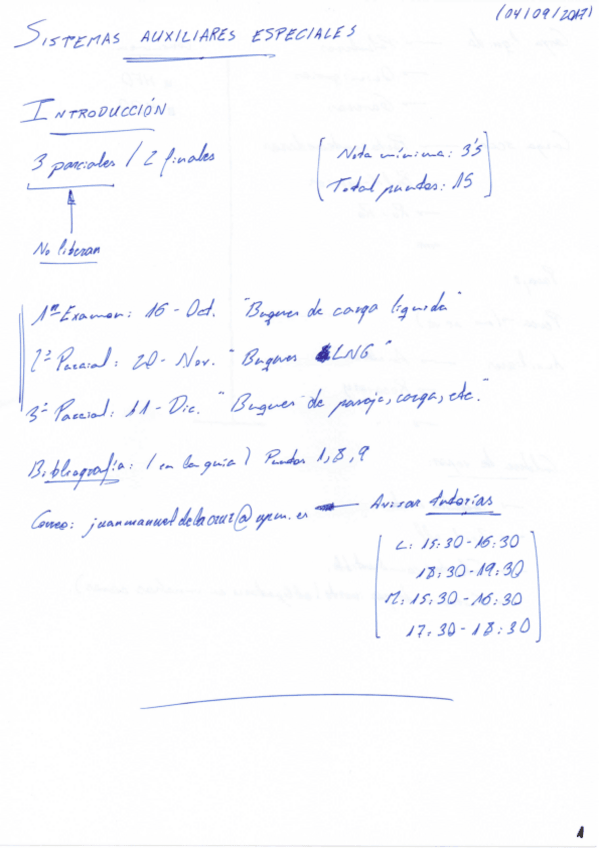 (04/09/2017)
SISTEMAS AUXILIARES ESPECIALES
INTRODUCCIÓN
3 parciales / 2 finales
No liberan
[Nota mínima: 3'5
Total puntos: 15]
1er Examen: 16 - Oct. "Buques de carga líquida"
2º Parcial: 20 - Nov. "Buques LNG"
3º Parcial: 11 - Dic. "Buques de pasaje, carga, etc."
Bibliografía: (en la guía) Puntos 1, 8, 9
Correo: juanmanuel.delacruz@upm.es ← Avisar tutorías
[L: 15:30 - 16:30
18:30 - 19:30
M: 15:30 - 16:30
17:30 - 18:30]
1